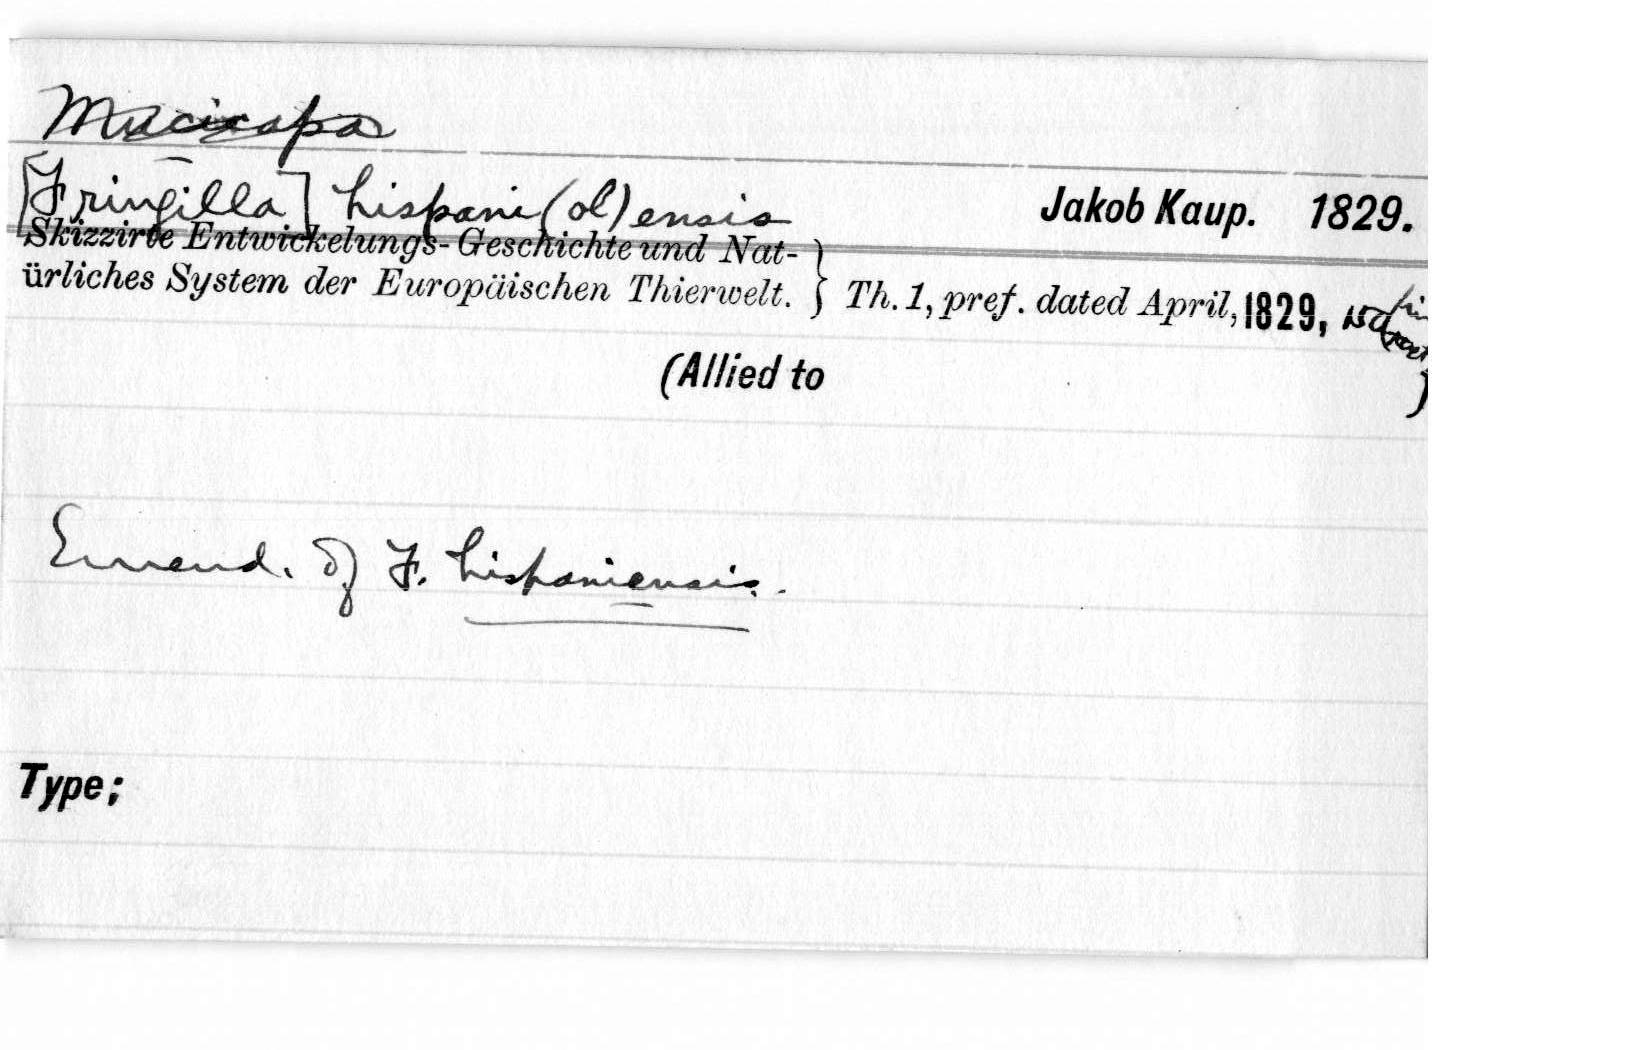 [Fringilla] hispani(ol)ensis Jakob Kaup. 1829.
Skizzirte Entwickelungs-Geschichte und Nat-
ürliches System der Europäischen Thierwelt. } Th. 1, pref. dated April, 1829,
(Allied to )
Emend. of F. hispaniensis.
Type;